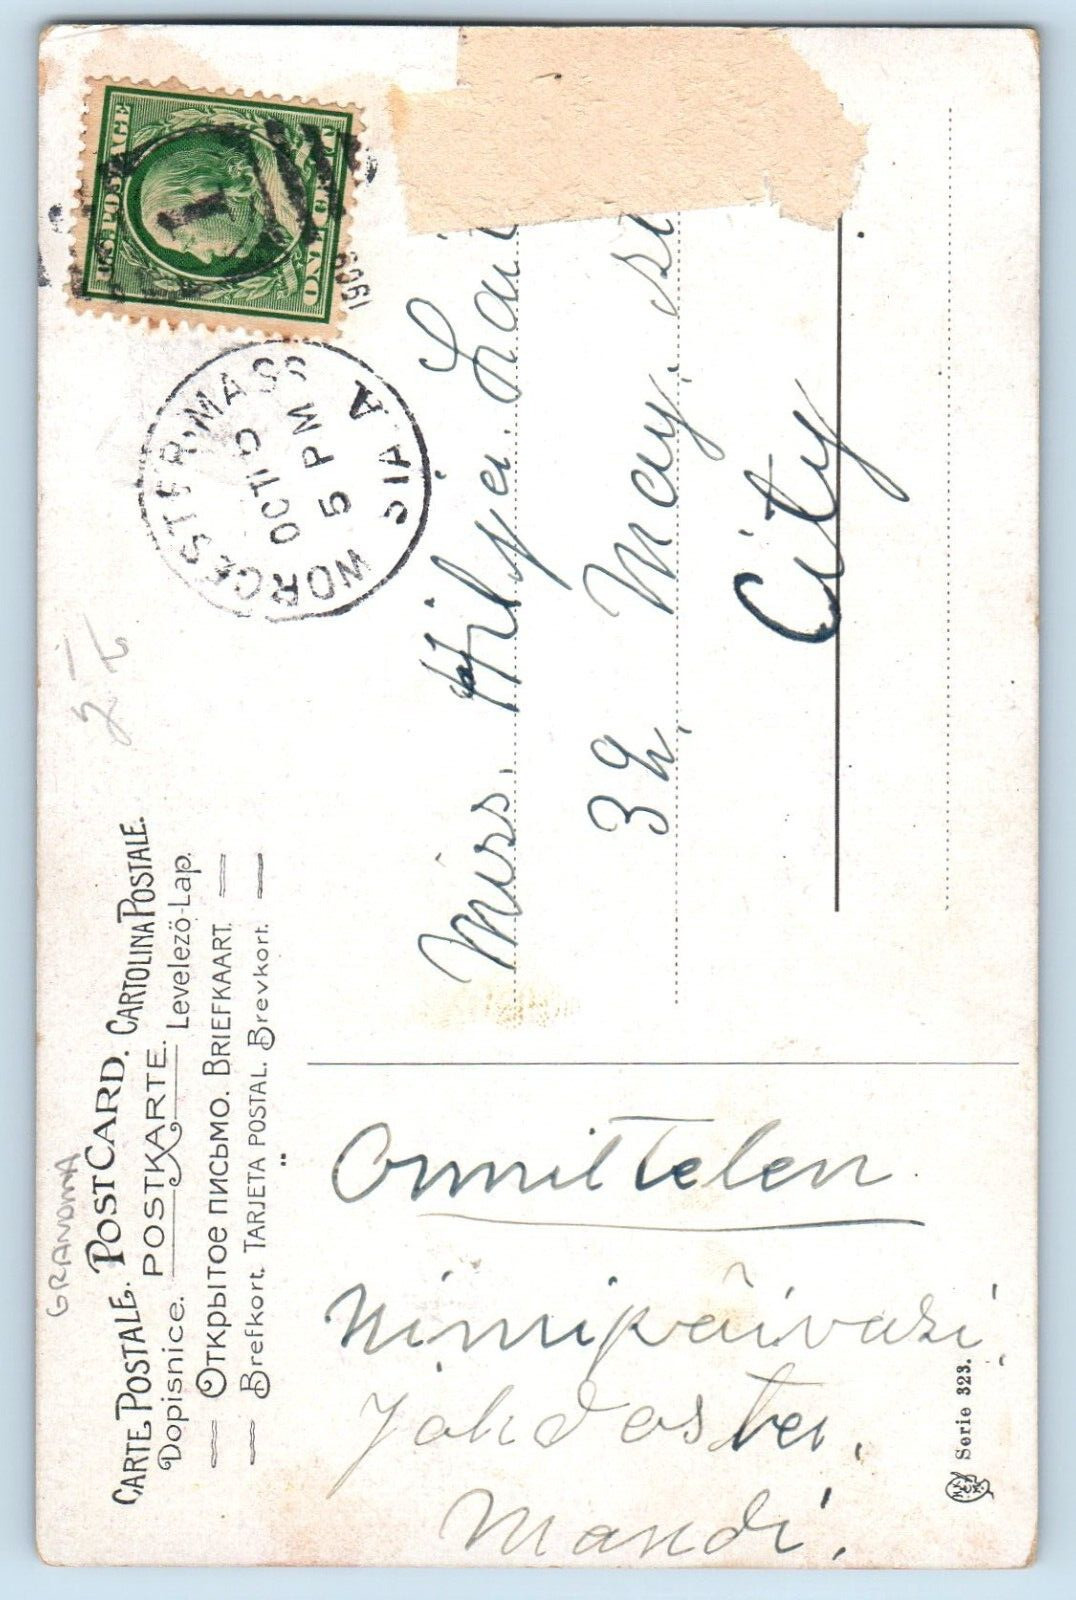 GRANDMA
CARTE POSTALE. POSTCARD. CARTOLINA POSTALE.
Dopisnice. POSTKARTE. Levelező-Lap.
Открытое письмо. BRIEFKAART.
Brefkort. TARJETA POSTAL. Brevkort.
U.S. POSTAGE
ONE CENT
1
1909
WORCESTER, MASS
OCT 10
5 PM
STA. A
Miss. Hilja.
32. May. st
City
Onnittelen
Nimipäiväsi,
Johdosta,
Mandi.
Serie 323.